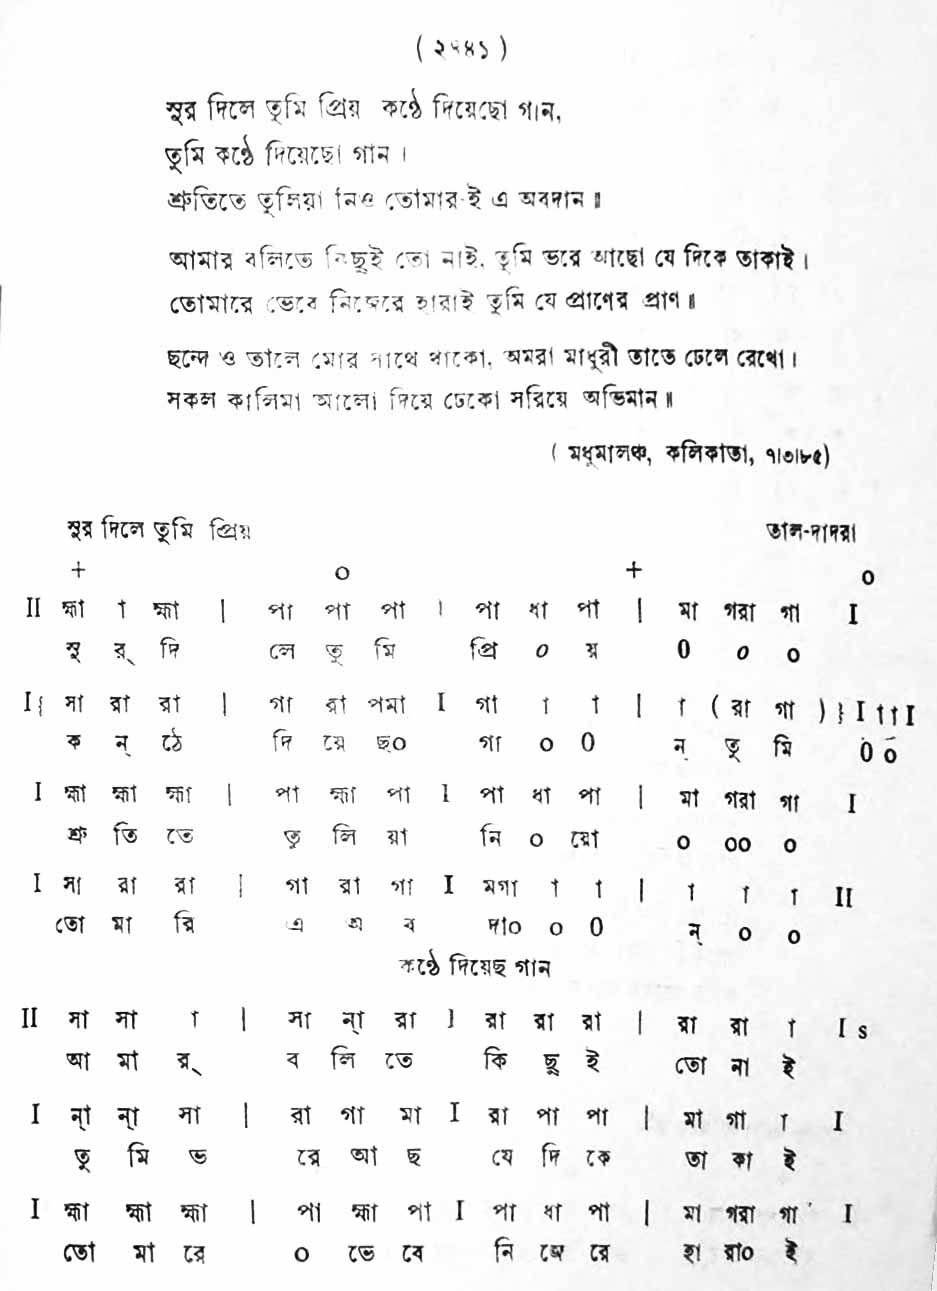 ( ২৭৪১ )
সুর দিলে তুমি প্রিয় কণ্ঠে দিয়েছো গান,
তুমি কণ্ঠে দিয়েছো গান ।
শ্রুতিতে তুলিয়া নিও তোমার-ই এ অবদান ॥
আমার বলিতে কিছুই তো নাই, তুমি ভরে আছো যে দিকে তাকাই ।
তোমারে ভেবে নিজেরে হারাই তুমি যে প্রাণের প্রাণ ॥
ছন্দে ও তালে মোর সাথে থাকো, অমরা মাধুরী তাতে ঢেলে রেখো ।
সকল কালিমা আলো দিয়ে ঢেকো সরিয়ে অভিমান ॥
( মধুমালঞ্চ, কলিকাতা, ৭।৩।৮৫)
সুর দিলে তুমি প্রিয় তাল-দাদরা
+ ০ + ০
II হ্মা া হ্মা | পা পা পা । পা ধা পা | মা গরা গা I
সু র্ দি লে তু মি প্রি ০ য় ০ ০ ০
I{ সা রা রা | গা রা পমা I গা া া | া ( রা গা ) } I া া I
ক ন্ ঠে দি য়ে ছ০ গা ০ ০ ন্ তু মি ০ ০
I হ্মা হ্মা হ্মা | পা হ্মা পা I পা ধা পা | মা গরা গা I
শ্রু তি তে তু লি য়া নি ০ য়ো ০ ০০ ০
I সা রা রা | গা রা গা I মগা া া | া া া II
তো মা রি এ অ ব দা০ ০ ০ ন্ ০ ০
কণ্ঠে দিয়েছ গান
II সা সা া | সা ন্া রা I রা রা রা | রা রা া I s
আ মা র্ ব লি তে কি ছু ই তো না ই
I ন্া ন্া সা | রা গা মা I রা পা পা | মা গা া I
তু মি ভ রে আ ছ যে দি কে তা কা ই
I হ্মা হ্মা হ্মা | পা হ্মা পা I পা ধা পা | মা গরা গা I
তো মা রে ০ ভে বে নি জে রে হা রা০ ই